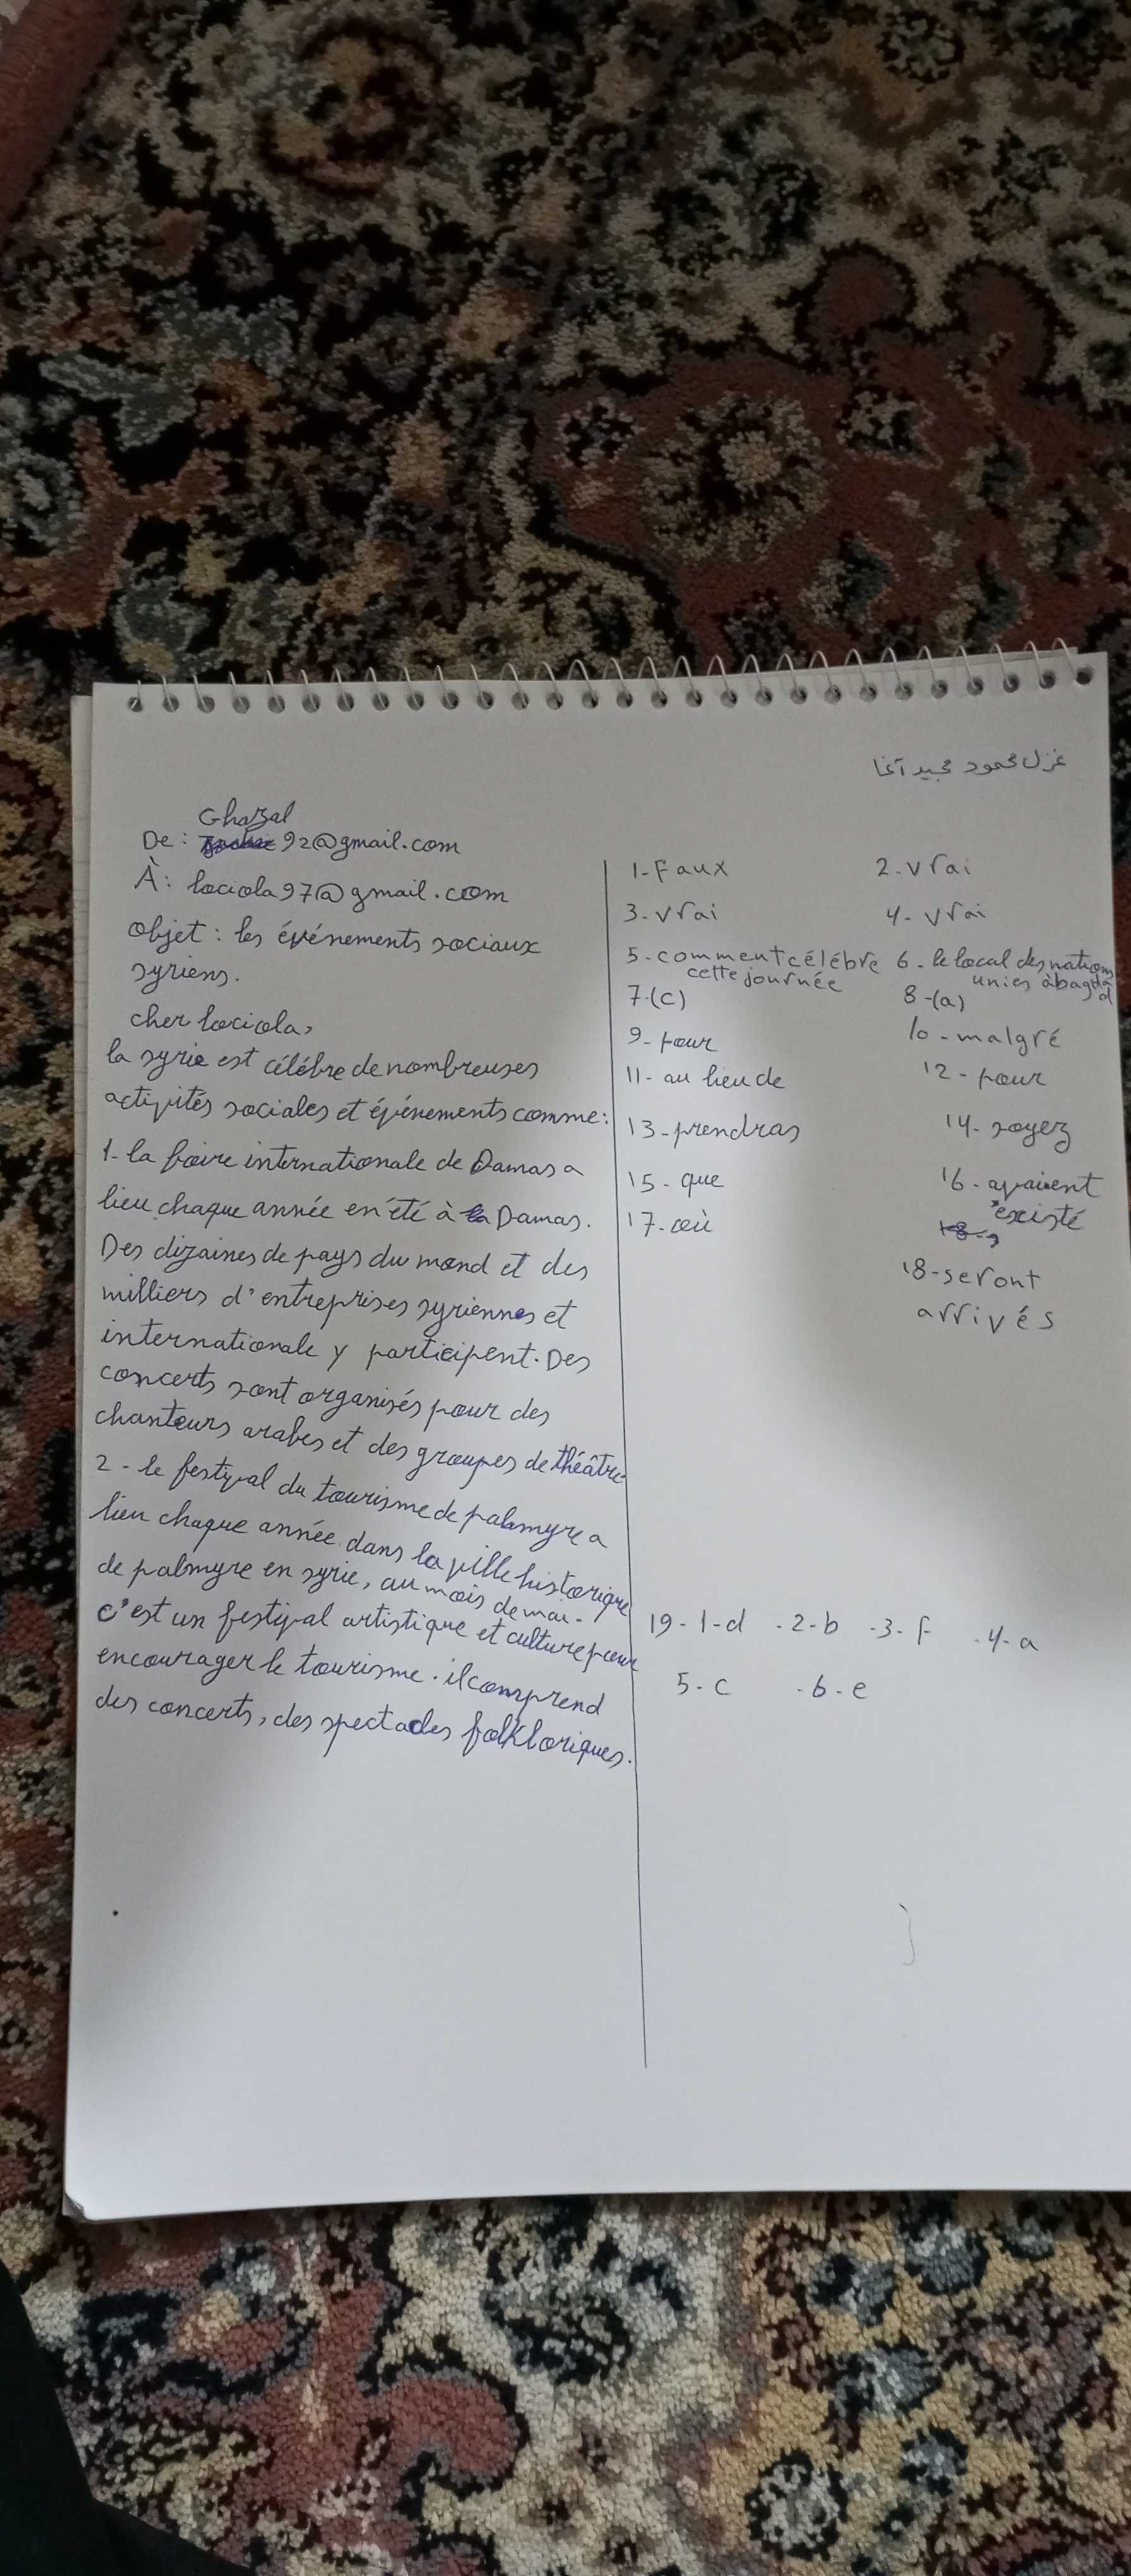 غزل محمود مجيد آغا
Ghazal
De : 92@gmail.com
À : lociola97@gmail.com
objet : les événements sociaux
syriens.
cher lociola,
la syrie est célébre de nombreuses
activités sociales et événements comme:
1- la foire internationale de Damas a
lieu chaque année en été à Damas.
Des dizaines de pays du mond et des
milliers d'entreprises syriennes et
internationale y participent. Des
concerts sont organisés pour des
chanteurs arabes et des groupes de théâtre
2 - le festival du tourisme de palmyre a
lieu chaque année dans la ville historique
de palmyre en syrie, au mois de mai.
c'est un festival artistique et culture pour
encourager le tourisme. il comprend
des concerts, des spectacles folkloriques.
1- Faux 2- vrai
3- vrai 4- vrai
5- comment célébre
cette journée
6- le local des nations
unies à bagdad
7-(c) 8-(a)
9- pour 10- malgré
11- au lieu de 12- pour
13- prendras 14- soyez
15- que 16- avaient
existé
17- où
18- seront
arrivés
19- 1-d .2-b .3-f .4-a
5-c .6-e